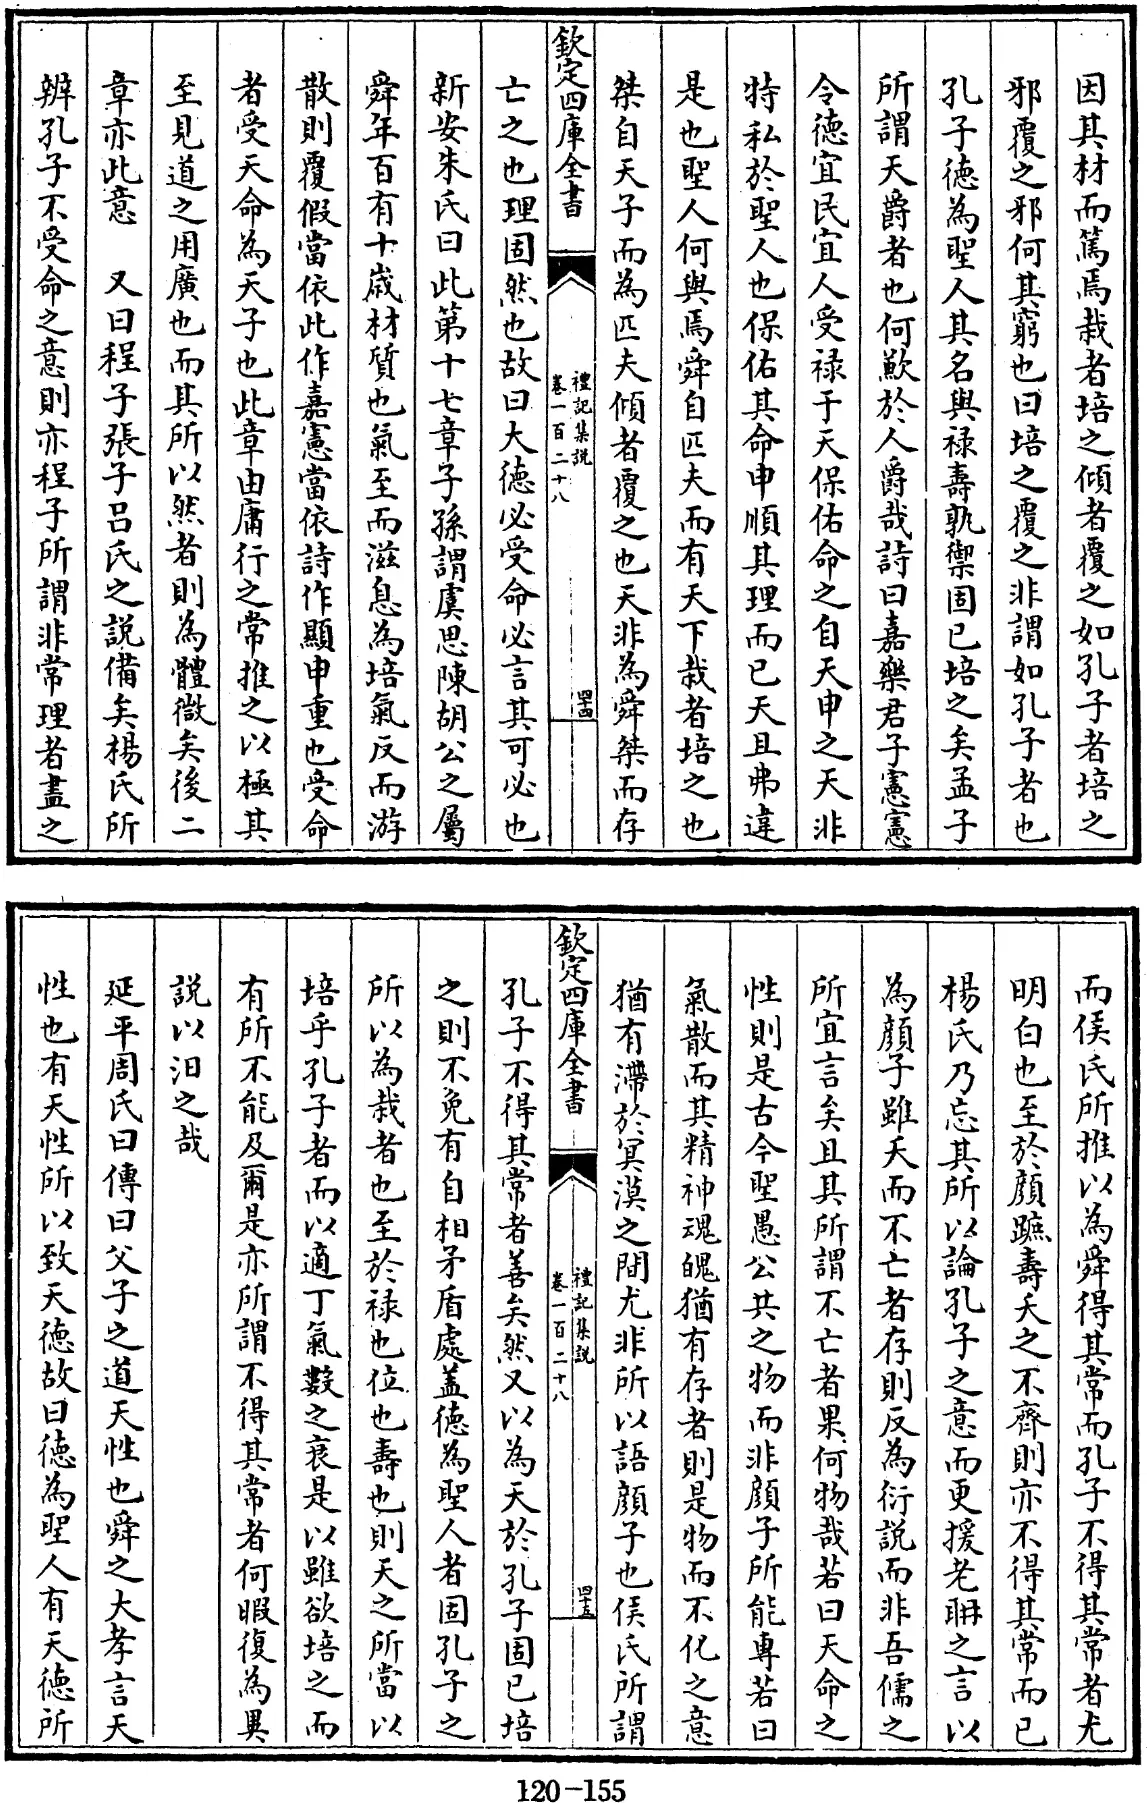 因其材而篤焉栽者培之傾者覆之如孔子者培之
邪覆之邪何其窮也曰培之覆之非謂如孔子者也
孔子德為聖人其名與禄壽孰禦固已培之矣孟子
所謂天爵者也何歉於人爵哉詩曰嘉樂君子憲憲
令德宜民宜人受禄于天保佑命之自天申之天非
特私於聖人也保佑其命申順其理而已天且弗違
是也聖人何與焉舜自匹夫而有天下栽者培之也
桀自天子而為匹夫傾者覆之也天非為舜桀而存
欽定四庫全書
禮記集説
卷一百二十八
四十四
亡之也理固然也故曰大德必受命必言其可必也
新安朱氏曰此第十七章子孫謂虞思陳胡公之屬
舜年百有十歳材質也氣至而滋息為培氣反而游
散則覆假當依此作嘉憲當依詩作顯申重也受命
者受天命為天子也此章由庸行之常推之以極其
至見道之用廣也而其所以然者則為體微矣後二
章亦此意　又曰程子張子吕氏之説備矣楊氏所
辨孔子不受命之意則亦程子所謂非常理者盡之
而侯氏所推以為舜得其常而孔子不得其常者尤
明白也至於顔蹠壽夭之不齊則亦不得其常而已
楊氏乃忘其所以論孔子之意而更援老聃之言以
為顔子雖夭而不亡者存則反為衍説而非吾儒之
所宜言矣且其所謂不亡者果何物哉若曰天命之
性則是古今聖愚公共之物而非顔子所能專若曰
氣散而其精神魂魄猶有存者則是物而不化之意
猶有滯於冥漠之間尤非所以語顔子也侯氏所謂
欽定四庫全書
禮記集説
卷一百二十八
四十五
孔子不得其常者善矣然又以為天於孔子固已培
之則不免有自相矛盾處蓋德為聖人者固孔子之
所以為栽者也至於禄也位也壽也則天之所當以
培乎孔子者而以適丁氣數之衰是以雖欲培之而
有所不能及爾是亦所謂不得其常者何暇復為異
説以汨之哉
延平周氏曰傳曰父子之道天性也舜之大孝言天
性也有天性所以致天德故曰德為聖人有天德所
120-155